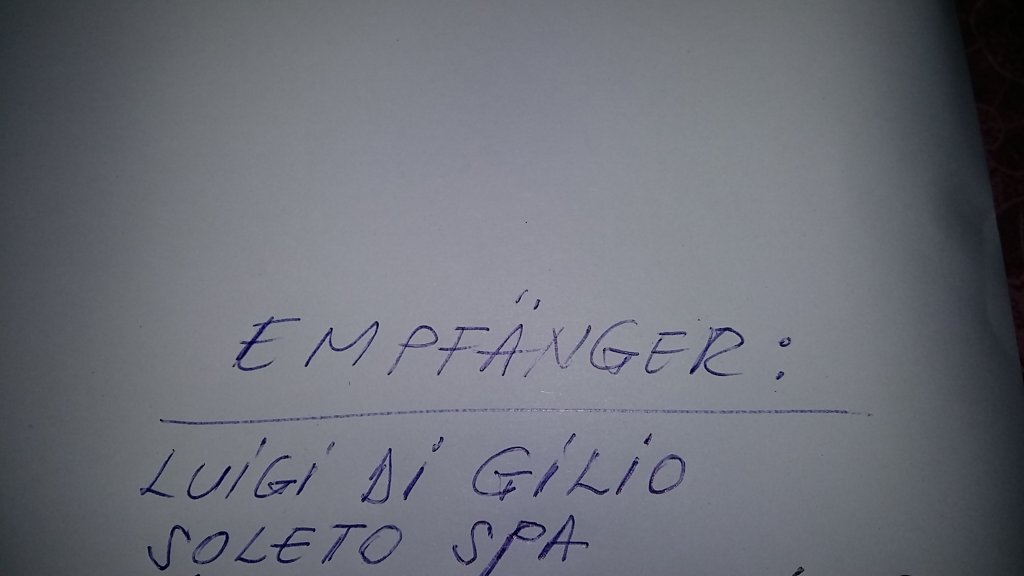 EMPFÄNGER:
LUiGi Di GiLiO
SOLETO SPA